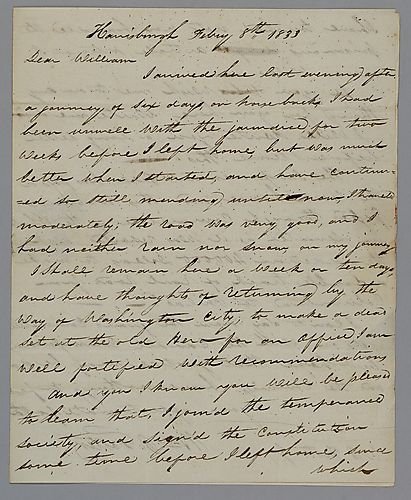 Harrisburgh Febry 8th 1833
Dear William
I arrived here last evening after
a journey of six days on horseback. I had
been unwell with the jaundice for two
weeks before I left home, but was much
better when I started, and have continu-
ed so still mending untill now I travel'd
moderately; the road was very good, and I
had neither rain nor snow on my journey
I shall remain here a week or ten days
and have thoughts of returning by the
way of Washington City, to make a dead
set at the old Hero for an office, I am
well fortified with recommendations
and you I know you will be pleased
to learn that, I join'd the temperance
society, and sign'd the Constitution
some time before I left home, since
which